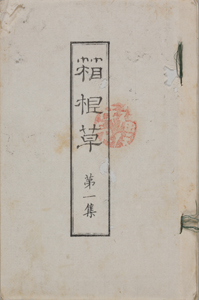 箱根草
第一集